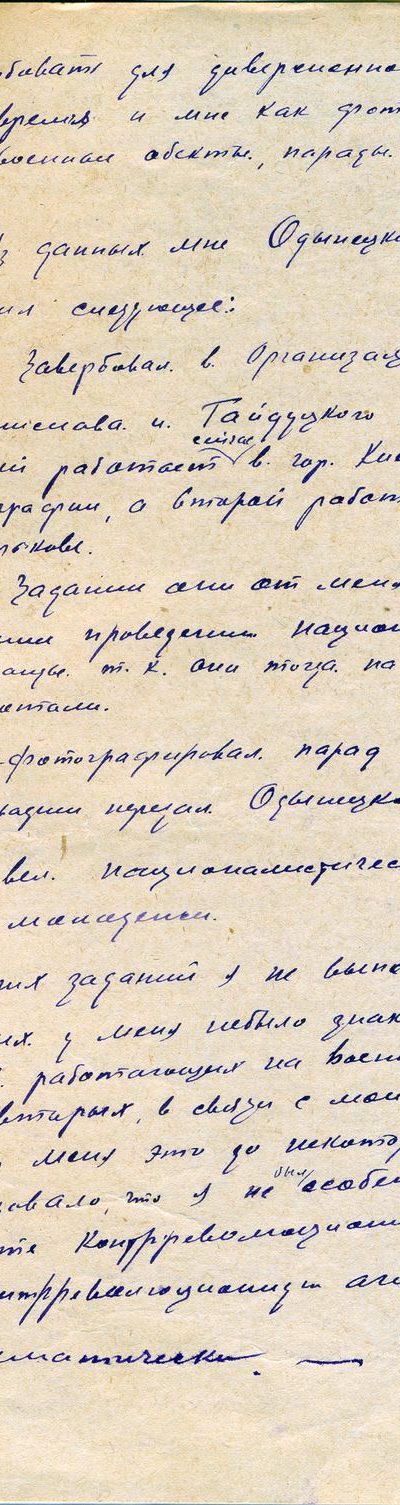 бовать для диверсионно
время и мне как фот
военные обекты, парады.
з данных мне Одынецк
ил следующее:
Завербовал. в. Организац
нислава. и. Гайдуцкого
сейчас
ий работает в. гор. Ки
графии, а второй работ
рькове.
Задании они от меня
нии проведении национ
т. к. они тогда. на
отали.
фотографировал. парад
передал. Одынецк
вел. националистичес
молодежи.
их заданий я не выпо
их. у меня небыло знак
работающих на воен
вторых, в связи с мои
меня это до некотор
был
овало, что я не особен
те контрреволюцион
нтрреволюционную аги
матически. —